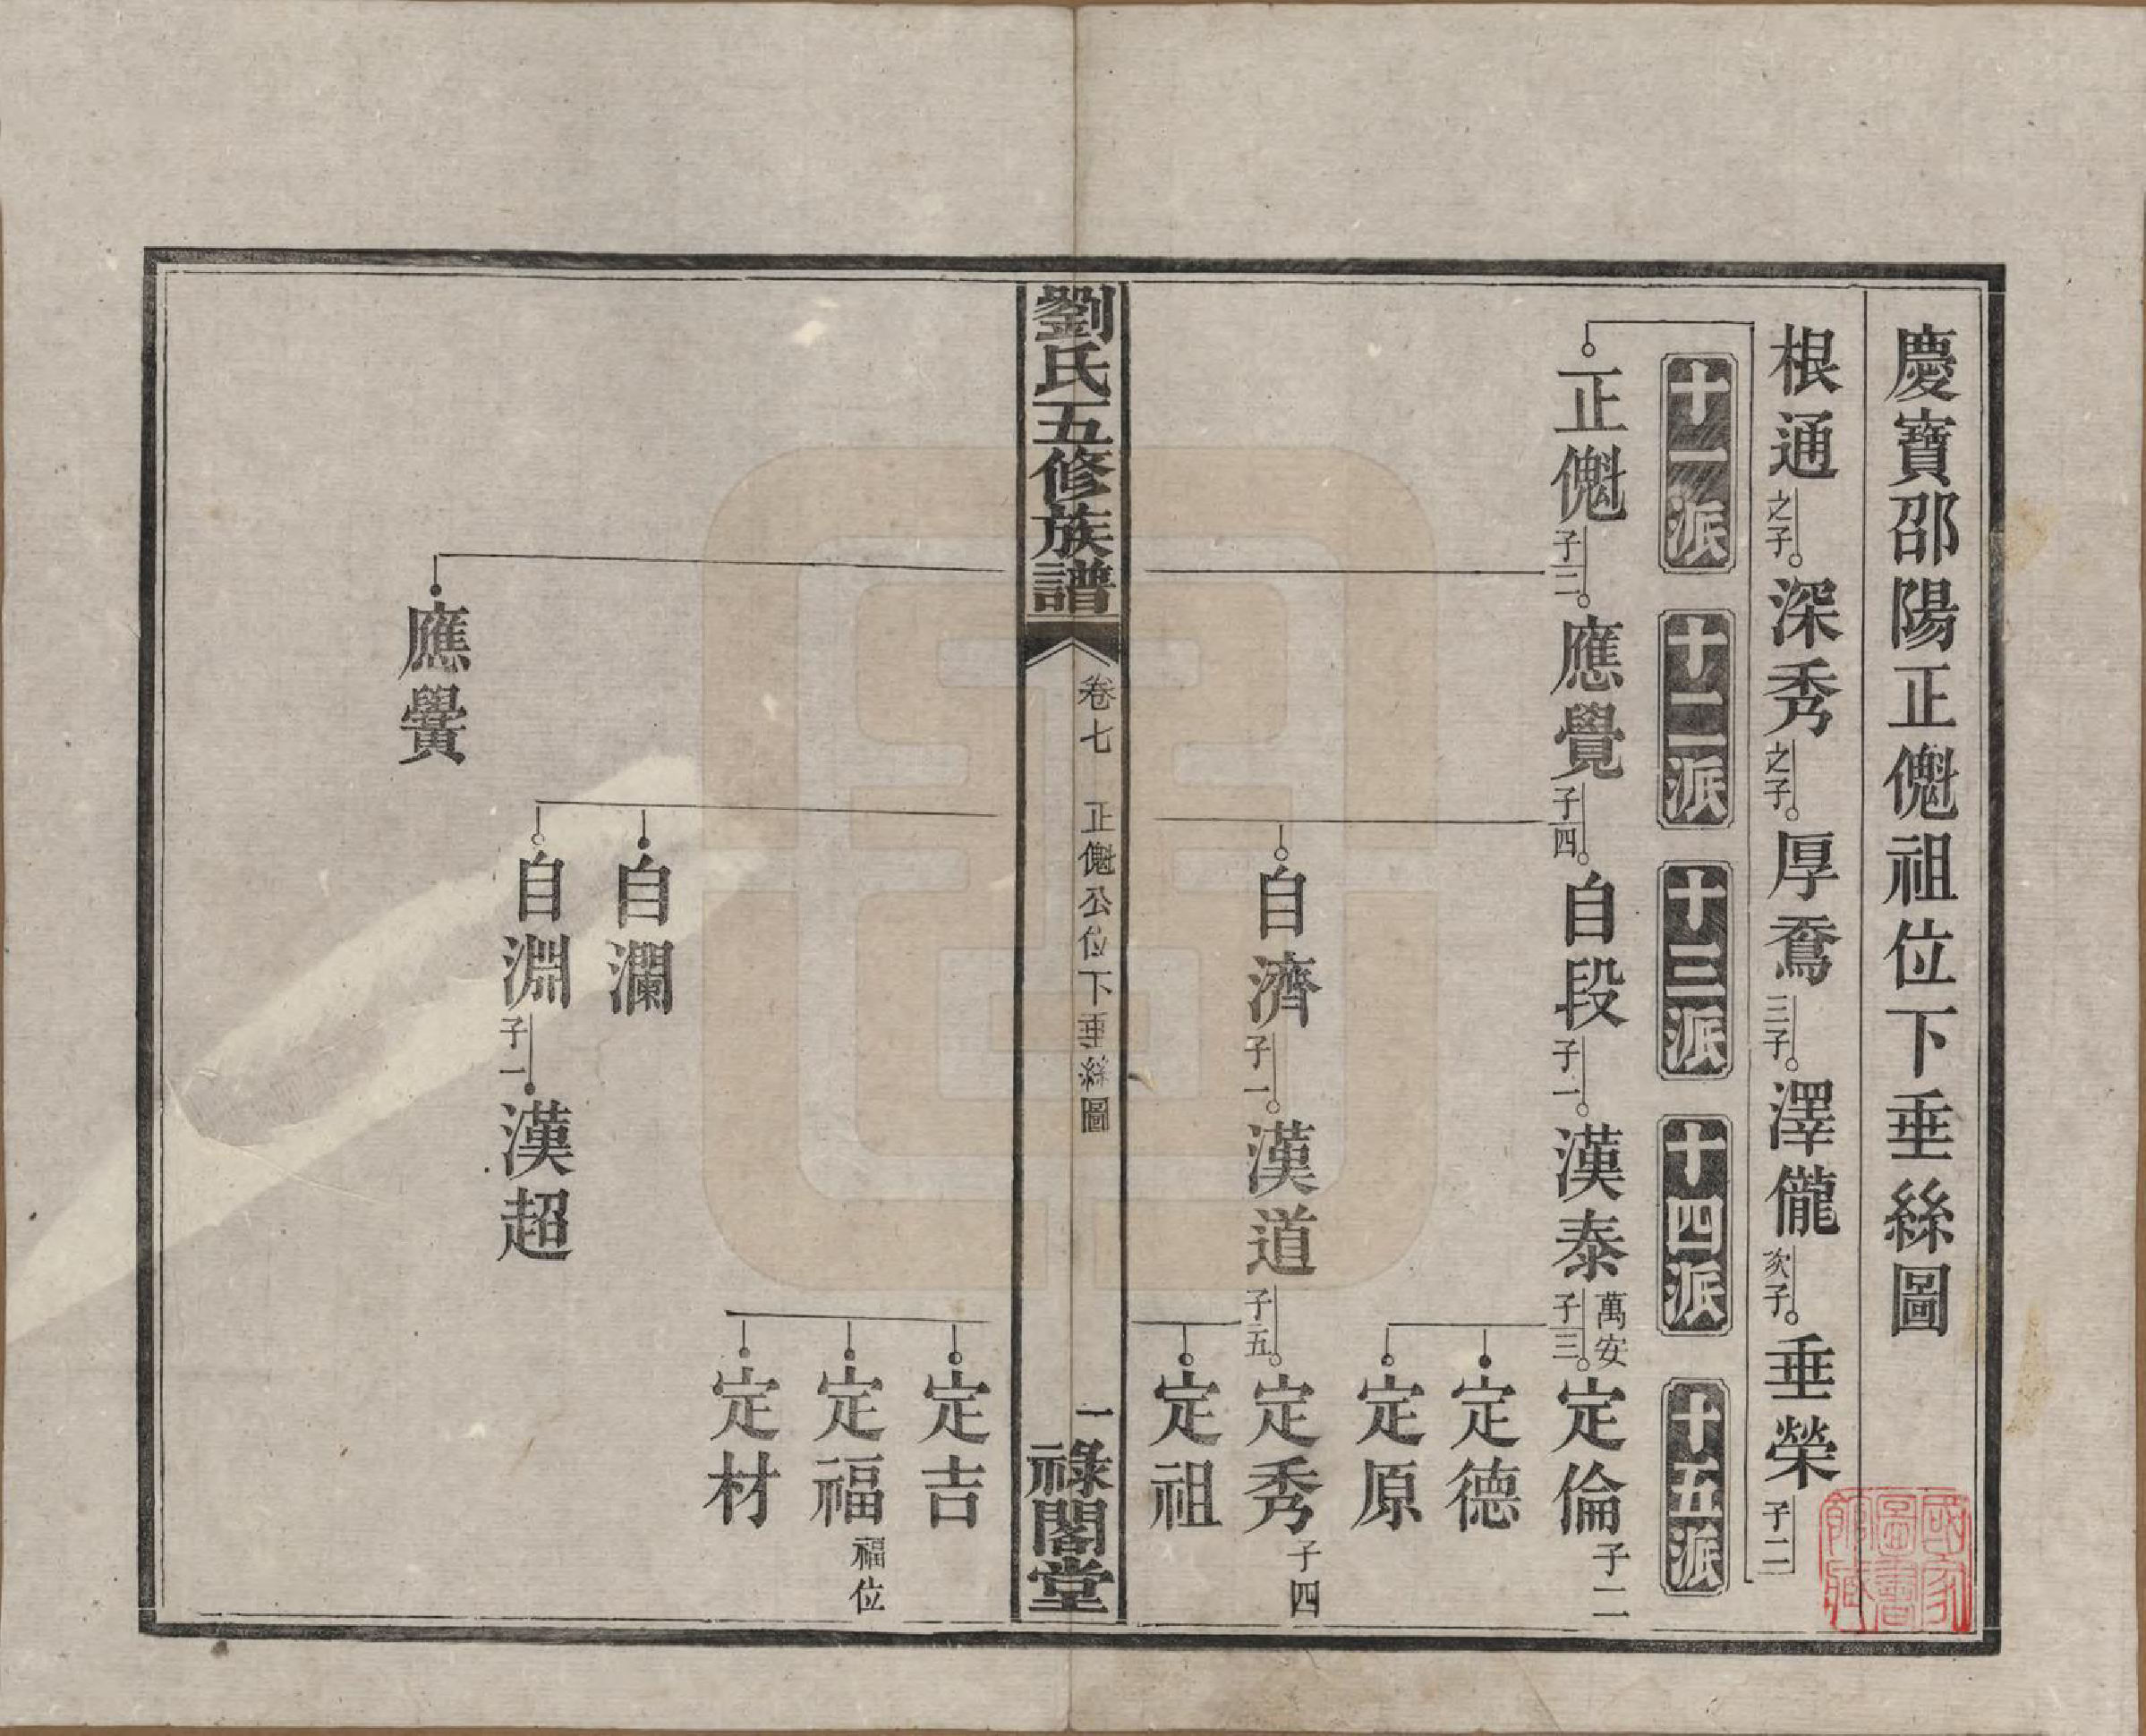 慶寶邵陽正傀祖位下垂絲圖
根通之子深秀之子厚鴌三子澤儱次子垂榮子二
十一派
十二派
十三派
十四派
十五派
正傀子二應覺子四自段子一漢泰萬安子三定倫子二
定德
定原
自濟子一漢道子五定秀子四
定祖
劉氏五修族譜
卷七
正傀公位下垂絲圖
一
祿閣堂
定吉
定福福位
定材
自瀾
自淵子一漢超
應黌
國家圖書館藏